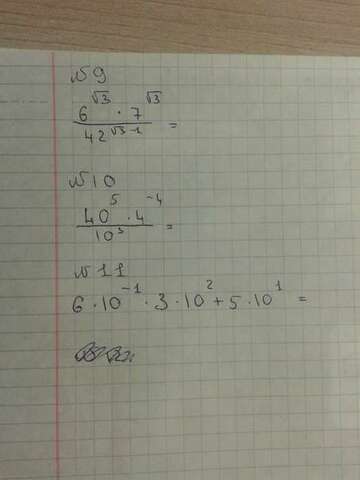 №9
6^√3 · 7^√3 / 42^(√3-1) =
№10
40^5 · 4^-4 / 10^3 =
№11
6·10^-1 · 3·10^2 + 5·10^1 =